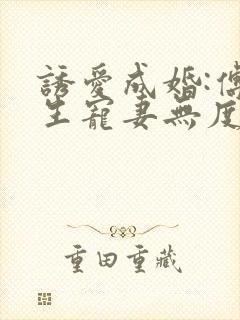 誘愛成婚:傅
生寵妻無度
重田重藏